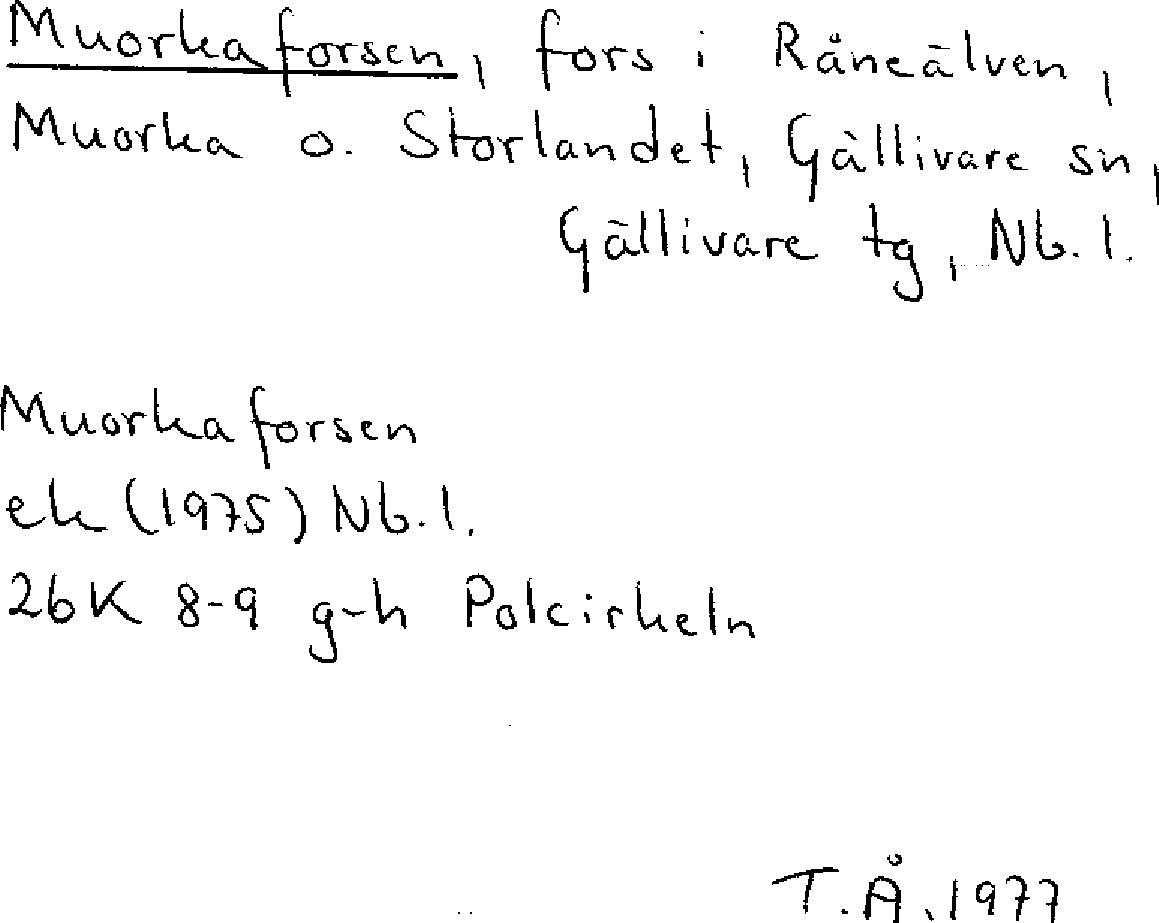 Muorkaforsen, fors i Råneälven,
Muorka o. Storlandet, Gällivare sn,
Gällivare tg, Nb. l.
Muorkaforsen
ek (1975) Nb. l.
26K 8-9 g-h Polcirkeln
T.Å. 1977